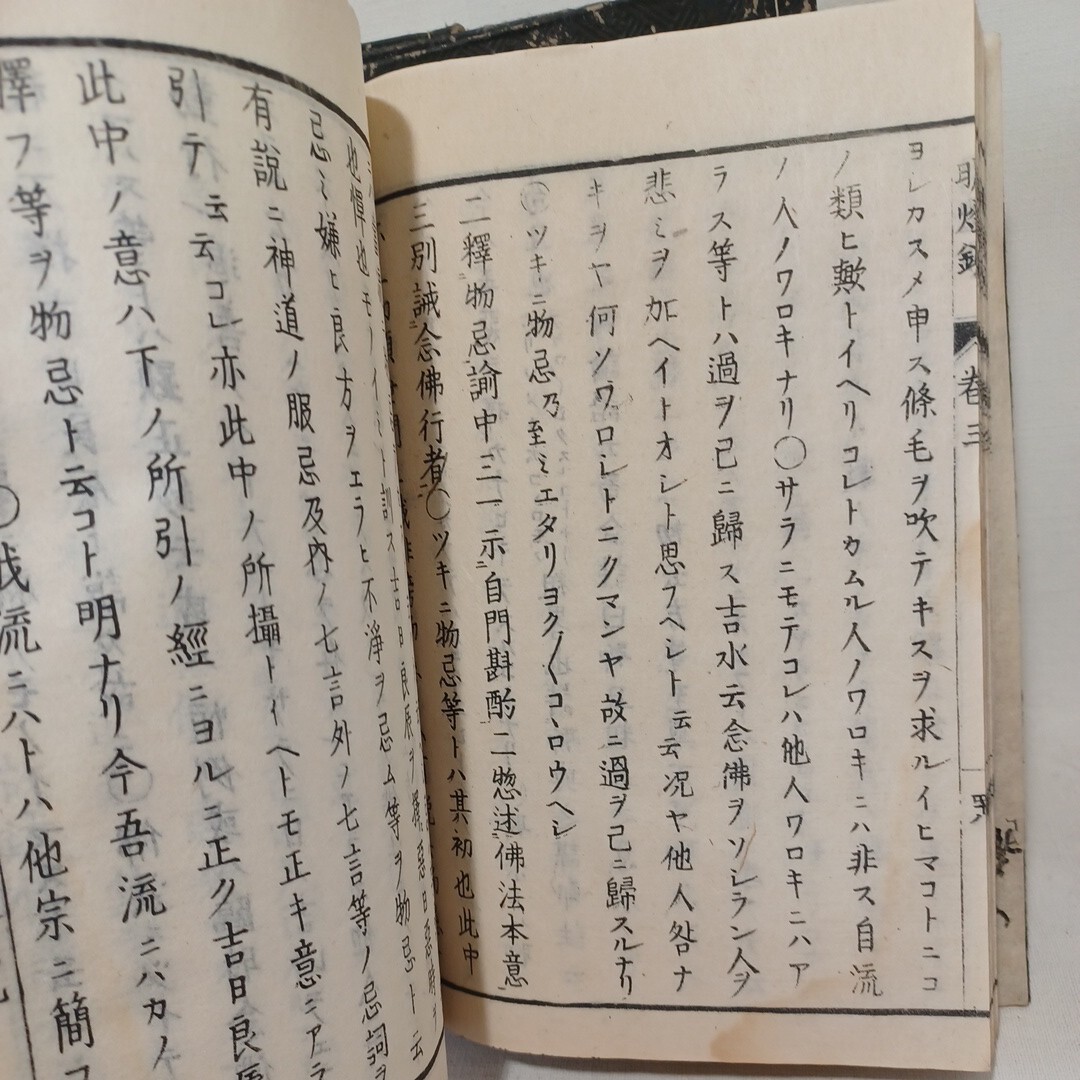 明燈鈔
卷三
ヨレカスメ申ス條毛ヲ吹テキスヲ求ルイヒマコトニコ
ノ類ヒ歟トイヘリコレトカムル人ノワロキニハ非ス自流
ノ人ノワロキナリ○サラニモテコレハ他人ワロキニハア
ラス等トハ過ヲ己ニ歸ス吉水云念佛ヲソシラン人ヲ
悲ミヲ加ヘイトオシト思フヘシト云云况ヤ他人咎ナ
キヲヤ何ソワロシトニクマンヤ故ニ過ヲ己ニ歸スルナリ
ツキニ物忌乃至ミエタリヨク〱コヽロウヘシ
二釋物忌諭中三一示自門斟酌二惣述佛法本意
三別誡念佛行者○ツキニ物忌等トハ其初也此中
吉日良辰ヲ擇惡日惡時ヲ
也憚也モノイミト訓ス
忌ミ嫌ヒ良方ヲエラヒ不淨ヲ忌ム等ヲ物忌ト云
有說ニ神道ノ服忌及內ノ七言外ノ七言等ノ忌詞ヲ
引テ云云コレ亦此中ノ所攝トイヘトモ正キ意ニアラ
此中ノ意ハ下ノ所引ノ經ニヨルニ正ク吉日良辰
擇フ等ヲ物忌ト云コト明ナリ今吾流ニハカノ
○我流ニハトハ他宗ニ簡フ